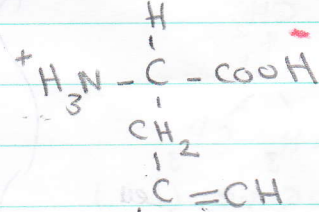 H
+H3N - C - COOH
CH2
C=CH